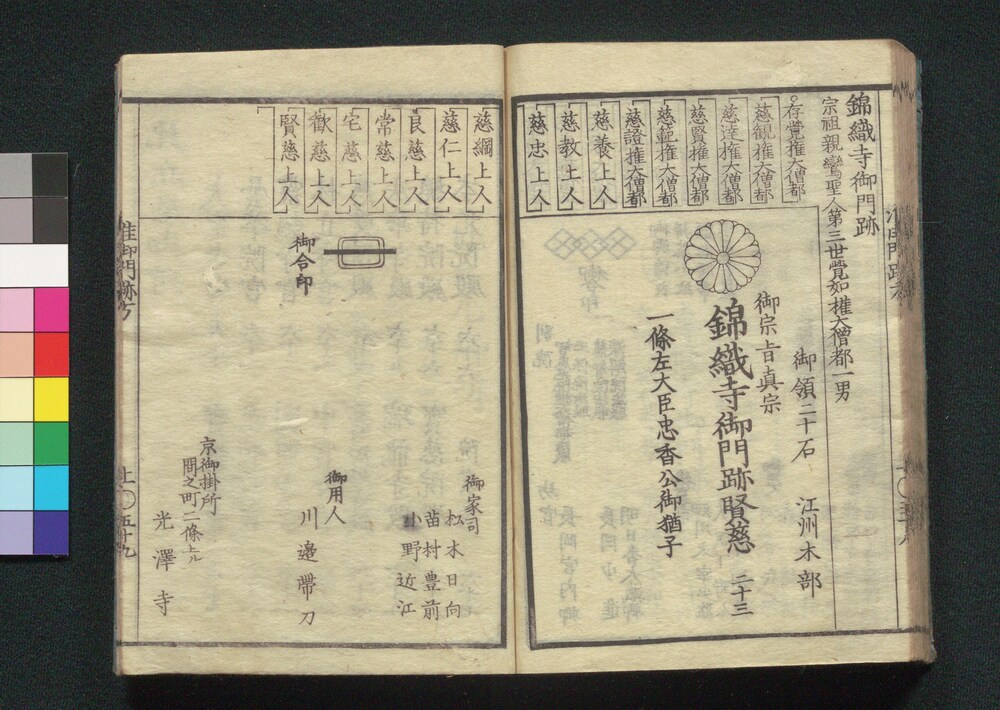 錦織寺御門跡
宗祖親鸞聖人第三世覺如權大僧都一男
存覺權大僧都
慈観權大僧都
慈達權大僧都
慈賢權大僧都
慈範權大僧都
慈證權大僧都
慈養上人
慈教上人
慈忠上人
御領二十石
江州木部
御宗旨真宗
錦織寺御門跡賢慈
二十三
一條左大臣忠香公御猶子
慈綱上人
慈仁上人
良慈上人
常慈上人
宅慈上人
歡慈上人
賢慈上人
御合印
御家司
松木日向
苗村豊前
小野近江
御用人
川邉帶刀
京御掛所
間之町二條上ル
光澤寺
准御門跡方
上〇五十九